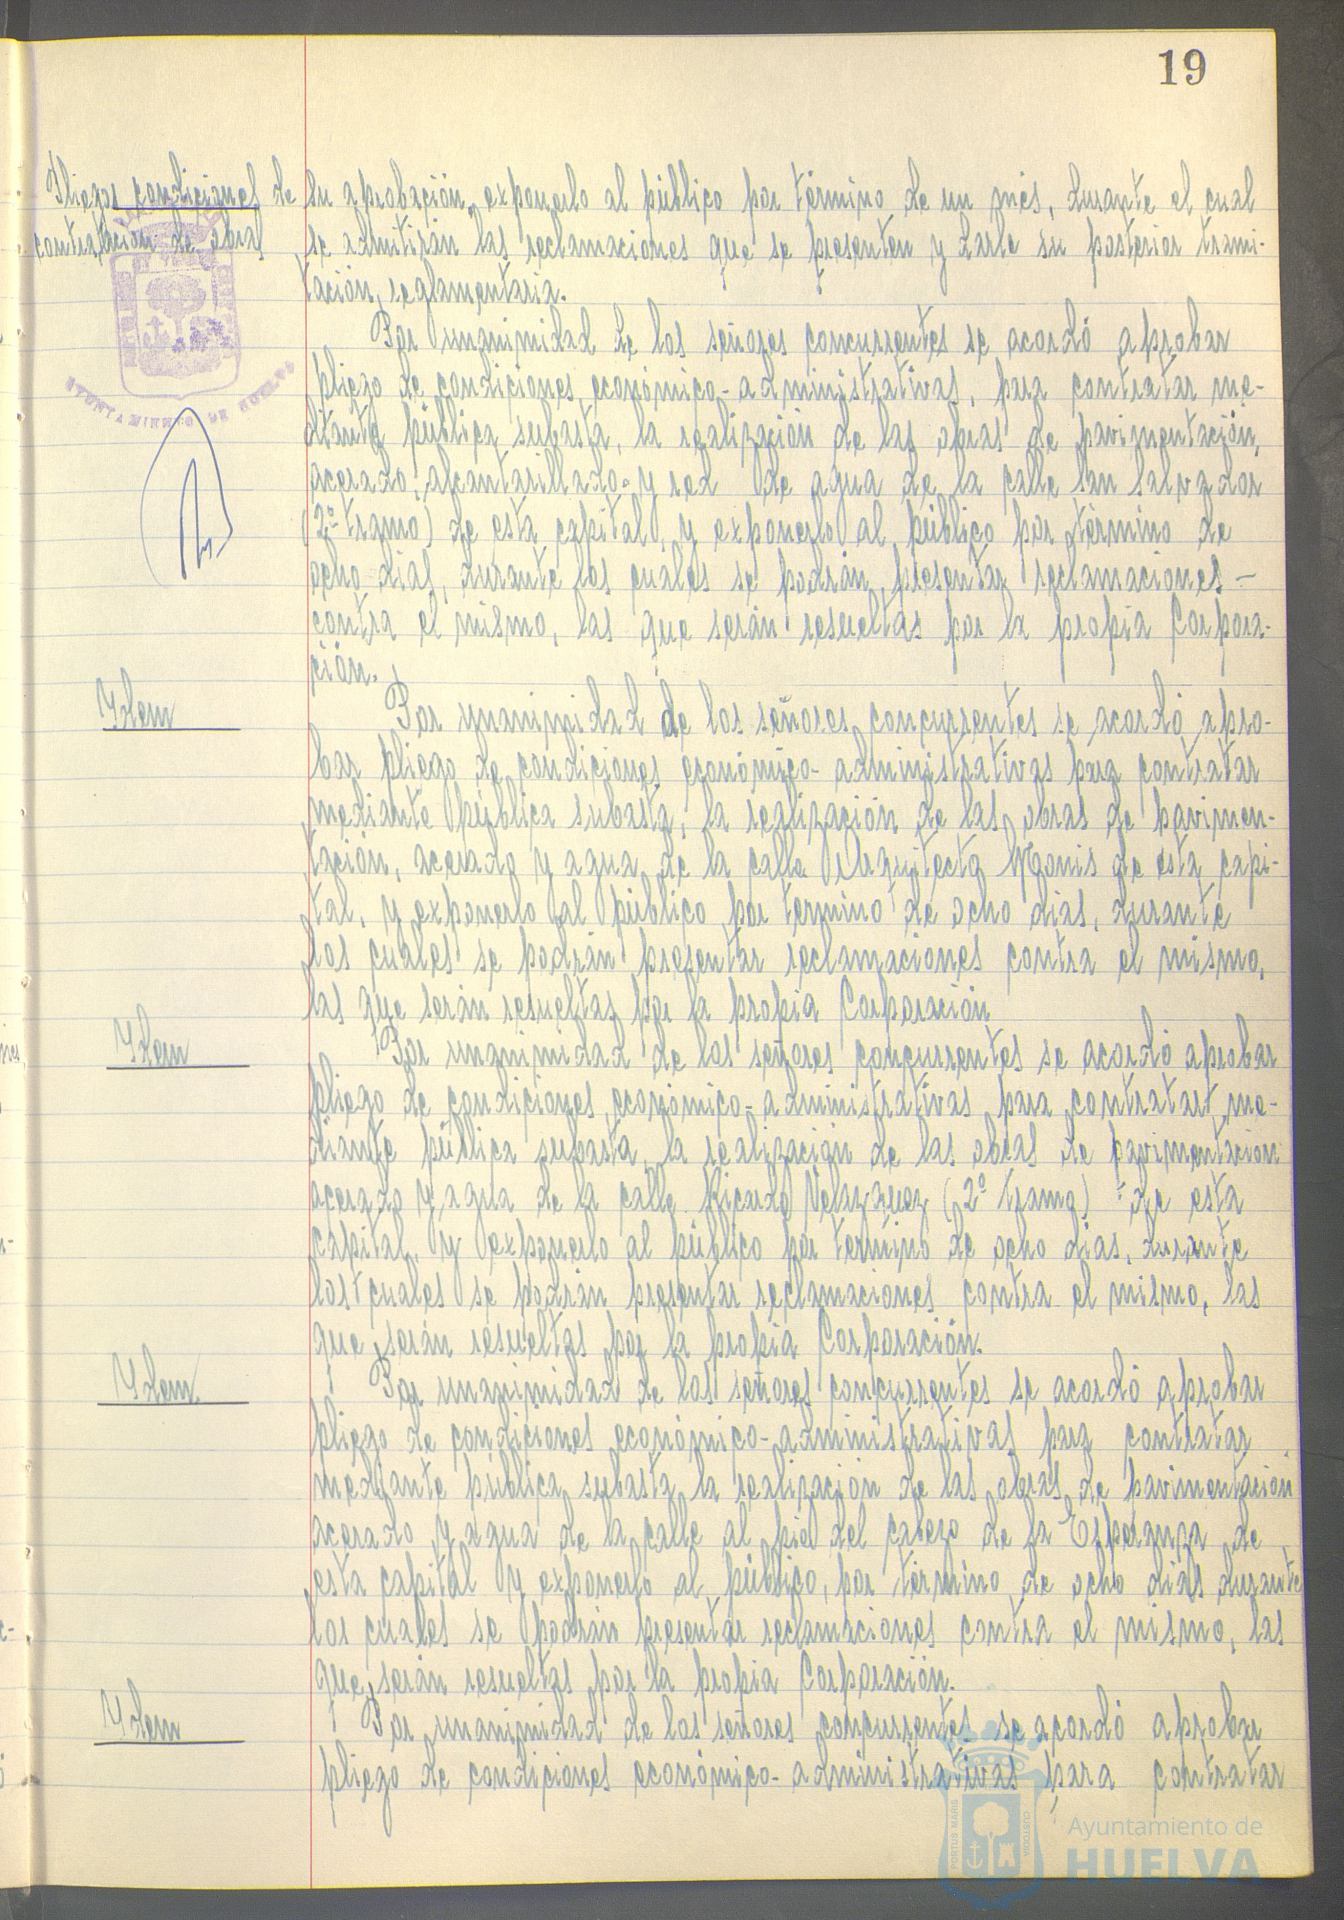 19
Pliegos condiciones de
contratación de obras
su aprobación, exponerlo al público por término de un més, durante el cual
se admitirán las reclamaciones que se presenten y darle su posterior trami-
tación reglamentaria.
Por unanimidad de los señores concurrentes se acordó aprobar
pliego de condiciones económico-administrativas, para contratar me-
diante pública subasta, la realización de las obras de pavimentación,
acerado, alcantarillado y red de agua de la calle San Salvador
(2º tramo) de esta capital, y exponerlo al público por término de
ocho dias, durante los cuales se podrán presentar reclamaciones -
contra el mismo, las que serán resueltas por la propia Corpora-
ción.
Idem
Por unanimidad de los señores concurrentes se acordó apro-
bar pliego de condiciones económico-administrativas para contratar
mediante pública subasta, la realización de las obras de pavimen-
tación, acerado y agua de la calle Arquitecto Monis de esta capi-
tal, y exponerlo al público por termino de ocho dias, durante
los cuales se podrán presentar reclamaciones contra el mismo,
las que serán resueltas por la propia Corporación
Idem
Por unanimidad de los señores concurrentes se acordó aprobar
pliego de condiciones económico-administrativas para contratar me-
diante pública subasta, la realización de las obras de pavimentación
acerado y agua de la calle Ricardo Velazquez (2º tramo) de esta
capital, y exponerlo al público por termino de ocho dias, durante
los cuales se podrán presentar reclamaciones contra el mismo, las
que serán resueltas por la propia Corporación.
Idem
Por unanimidad de los señores concurrentes se acordó aprobar
pliego de condiciones económico-administrativas para contratar
mediante pública subasta la realización de las obras de pavimentación
acerado y agua de la calle al pie del cabezo de la Esperanza de
esta capital y exponerlo al público, por término de ocho dias durante
los cuales se podrán presentar reclamaciones contra el mismo, las
que serán resueltas por la propia Corporación.
Idem
Por unanimidad de los señores concurrentes se acordó aprobar
pliego de condiciones económico-administrativas para contratar
AYUNTAMIENTO DE HUELVA
PORTUS MARIS
CUSTODIA
Ayuntamiento de
HUELVA